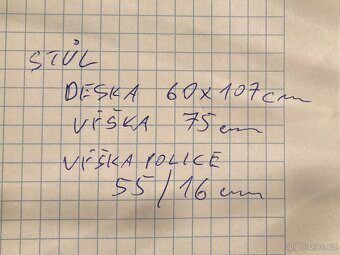 STŮL
DESKA 60x107cm
VÝŠKA 75cm
VÝŠKA POLICE
55/16cm